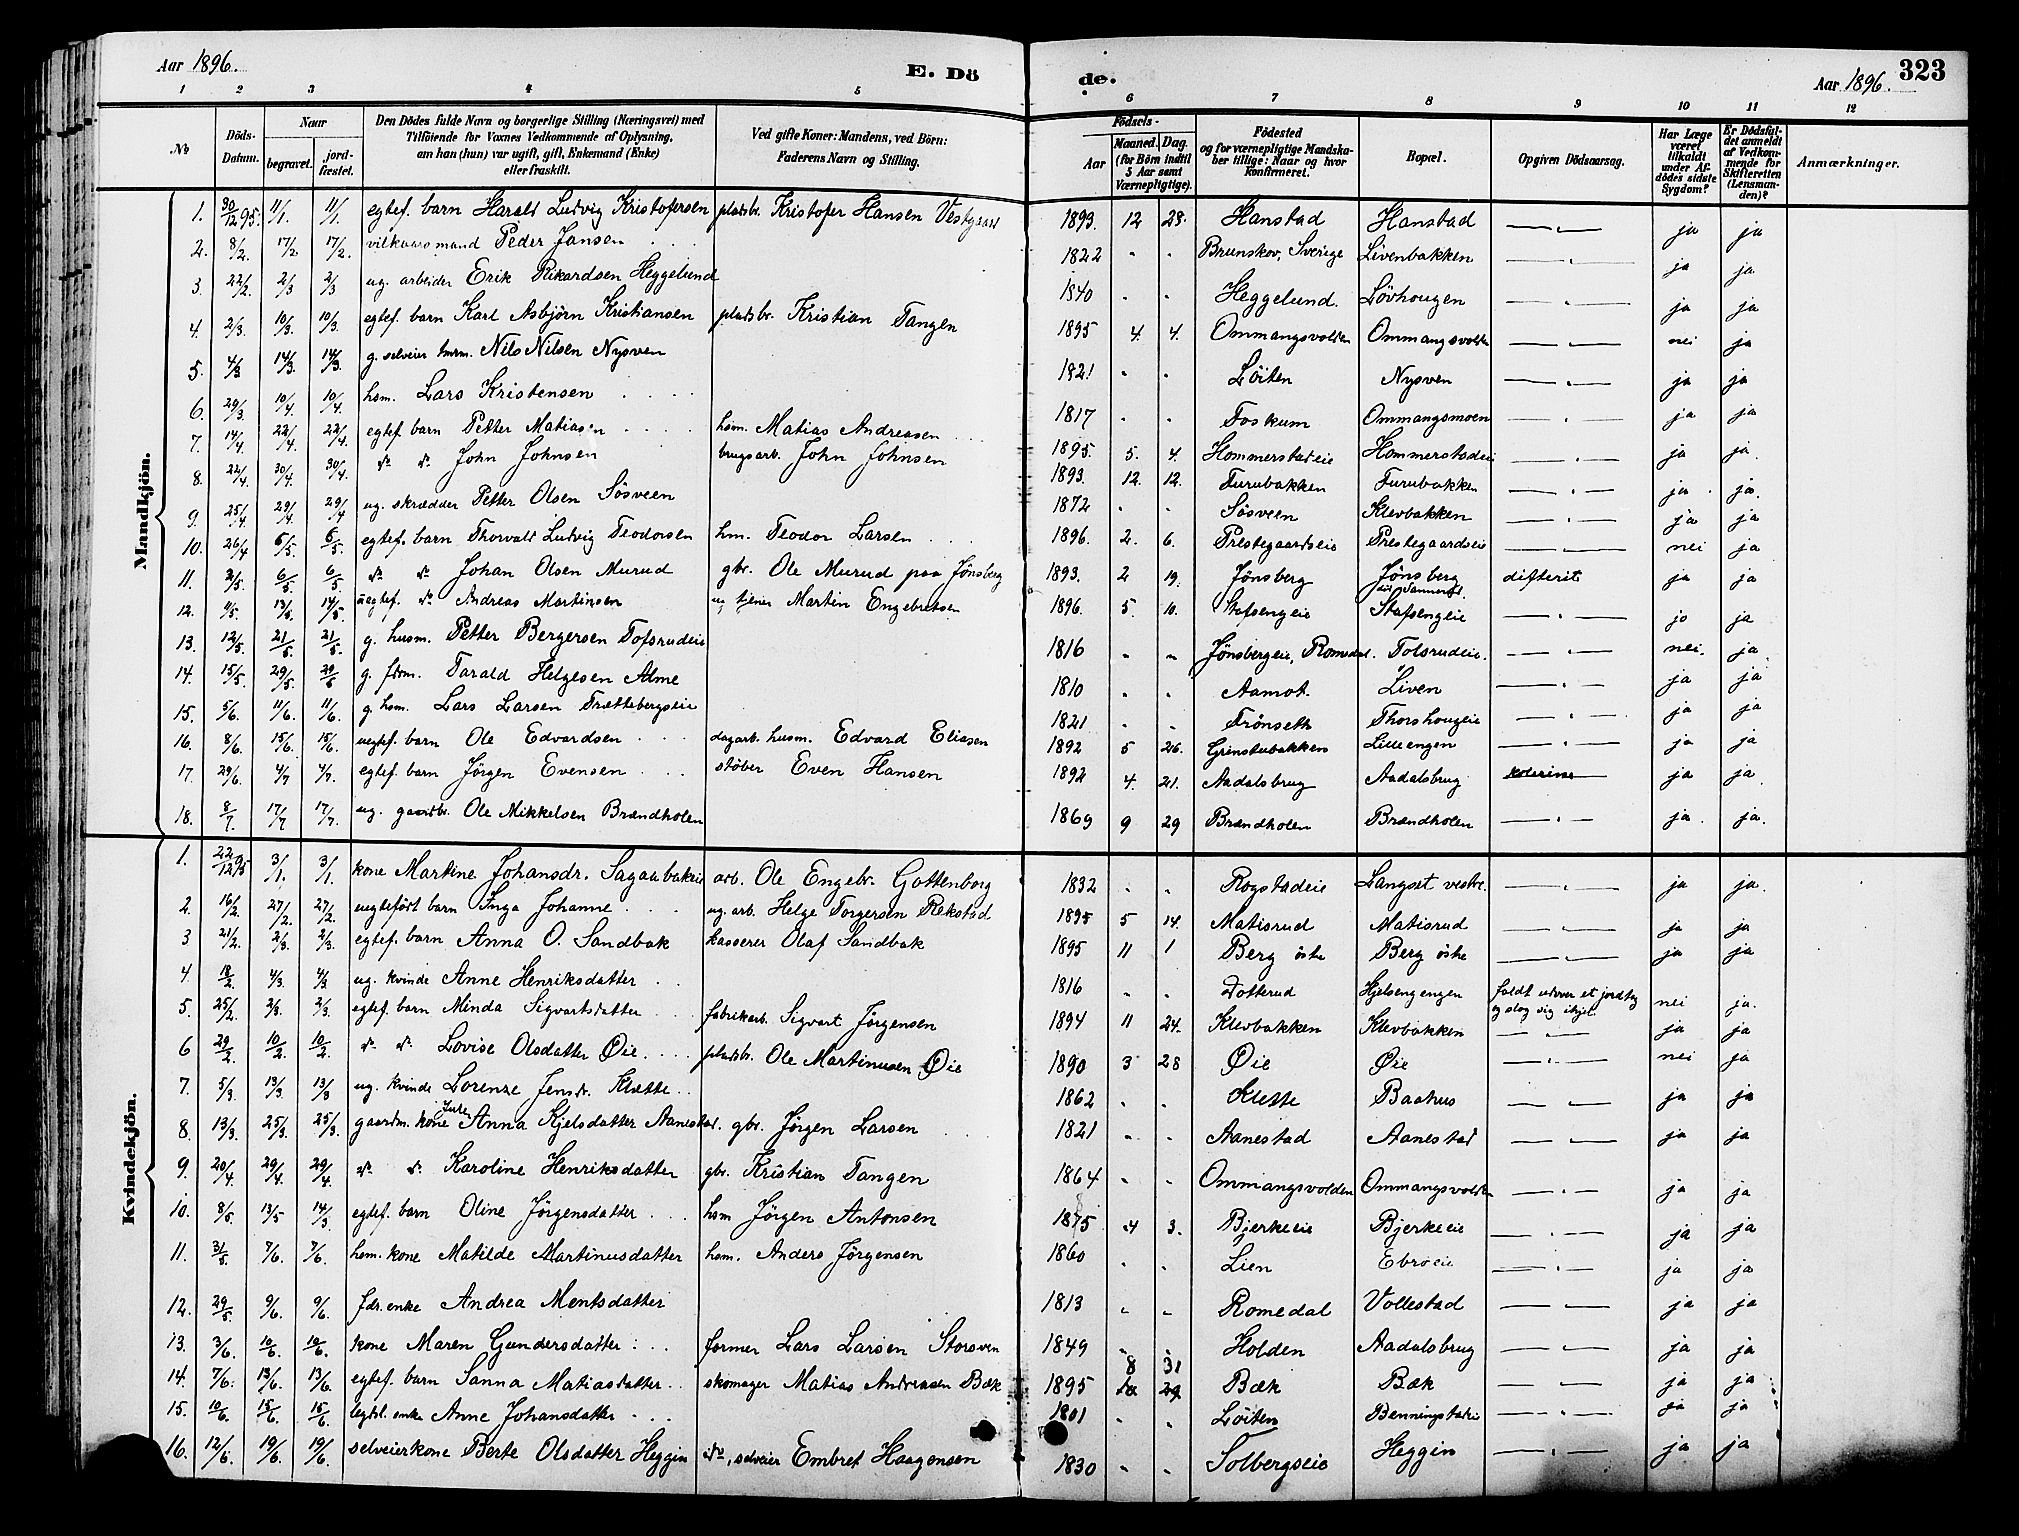 Aar 1896.
E. Dö
de.
Aar 1896.
323
1 2 3 4 5 6 7 8 9 10 11 12
No
Döds-Datum.
Naar
begravet.
jord-fæstet.
Den Dödes fulde Navn og borgerlige Stilling (Næringsvei) med
Tilföiende for Voxnes Vedkommende af Oplysning,
om han (hun) var ugift, gift, Enkemand (Enke)
eller fraskilt.
Ved gifte Koner: Mandens, ved Börn:
Faderens Navn og Stilling.
Födsels-
Aar
Maaned. Dag.
(for Börn indtil
5 Aar samt
Værnepligtige).
Födested
og for værnepligtige Mandska-
ber tillige: Naar og hvor
konfirmeret.
Bopæl.
Opgiven Dödsaarsag.
Har Læge
været
tilkaldt
under Af-
dödes sidste
Sygdom?
Er Dödsfal-
det anmeldt
af Vedkom-
mende for
Skifteretten
(Lensman-
den)?
Anmærkninger.
Mandkjön.
1. 30/12 95. 11/1. 11/1. egtef. barn Harald Ludvig Kristofersen pladsbr. Kristofer Hansen Vestgaard 1893. 12 28. Hanstad Hanstad — " — ja ja
2. 8/2. 17/2 17/2. vilkaarsmand Peder Jansen 1822 " " Brunskov, Sverige Livenbakken — " — ja ja
3. 22/2. 2/3 2/3 ug. arbeider Erik Rikardsen Heggelund 1840 " " Heggelund. Lövhougen — " — ja ja
4. 2/3. 10/3. 10/3. egtef. barn Karl Asbjörn Kristiansen pladsbr. Kristian Tangen 1895 4. 4. Ommangsvolden Ommangsvolden — " — nei ja
5. 4/3 14/3. 14/3. g. selveier Nils Nilsen Nysven 1821 " " Löiten Nysven — " — ja ja
6. 29/3. 10/4. 10/4. hsm. Lars Kristensen 1817 " " Foskum Ommangsmoen — " — ja ja
7. 14/4. 22/4. 22/4. egtef. barn Petter Matiasen hsm. Matias Andreasen 1895. 5. 4. Hommerstadeie Hommerstadeie — " — ja ja
8. 22/4. 30/4. 30/4. do do John Johnsen brugsarb. John Johnsen 1893. 12. 12. Furubakken Furubakken — " — ja ja.
9. 25/4 29/4. 29/4 ug. skrædder Petter Olsen Sösveen 1872 " " Sösveen Klevbakken — " — ja ja
10. 26/4 6/5 6/5. egtef. barn Thorvald Ludvig Teodorsen hm. Teodor Larsen 1896. 2. 6. Prestegaardseie Prestegaardseie — " — nei ja
11. 2/5. 6/5 6/5 do do Johan Olsen Murud gbr. Ole Murud paa Jönsberg 1893. 2 19. Jönsberg Jönsberg difterit ja ja
12. 9/5. 13/5 14/5. uegtef. do Andreas Martinsen ug tjener Martin Engebretsen 1896. 5 10. Stafsengeie Stafsengeie — " — ja ja
13. 12/5. 21/5 21/5 g. husm. Petter Bergersen Tofsrudeie 1816 " " Jönsbergeie, Romedal. Tofsrudeie. — " — nei. ja
14. 15/5. 29/5. 29/5 g. fdrm. Tarald Helgesen Alme 1810 " " Aamot. Liven — " — ja ja
15. 5/6. 11/6. 11/6. g. hsm. Lars Larsen Trættebergseie 1821 " " Frönseth Thorshougeie — " — ja ja
16. 8/6. 15/6. 15/6. uegtef. barn Ole Edvardsen dagarb. husm. Edvard Eliasen 1892 5 26. Grinstubakken Lilleengen — " — ja ja
17. 29/6. 4/7 4/7. egtef. barn Jörgen Evensen stöber Even Hansen 1892 4. 21. Aadalsbrug Aadalsbrug kolerine ja ja
18. 8/7. 17/7 17/7. ug. gaardbr. Ole Mikkelsen Brændholen 1869 9 29 Brændholen Brændholen — " — ja. ja.
Kvindekjön.
1. 22/12 95 3/1. 3/1. kone Martine Johansdr. Sagaabakeie arb. Ole Engebr. Gottenborg 1832 " " Rogstadeie Langset vestre. — " — ja ja.
2. 16/2. 27/2. 27/2. uegteföd barn Inga Johanne ug. arb. Helge Torgersen Rekstad 1895 5 14. Matisrud Matisrud — " — ja ja
3 21/2. 2/3. 2/3. egtef. barn Anna O. Sandbak kasserer Olaf Sandbak 1895 11 1 Berg östre Berg östre — " — ja ja
4 18/2. 4/3. 4/3 ug. kvinde Anne Henriksdatter 1816 " " Dotterud Hjelsengengen faldt udover et jordtag
og slog sig ihjel. nei ja.
5. 25/2. 2/3. 2/3. egtef. barn Minda Sigvartsdatter fabrikarb. Sigvart Jörgensen 1894 11 24. Klevbakken Klevbakken — " — ja ja
6 29/2. 10/2. 10/2. do do Lovise Olsdatter Øie. pladsbr. Ole Martinusen Øie 1890 3 28 Øie Øie — " — nei ja
7. 5/3 13/3. 13/3 ug. kvinde Lorense Jensdr. Klette 1862 " " Klette Baahus — " — ja ja
8. 13/3. 25/3. 25/3. gaardm. kone Anna Kjelsdatter Aanestad. gbr. Jörgen Larsen 1821 " " Aanestad Aanestad — " — ja ja
9. 20/4. 29/4. 29/4. do do Karoline Henriksdatter gbr. Kristian Tangen 1864 " " Ommangsvolden Ommangsvolden — " — ja ja
10. 8/5. 13/5 14/5 egtef. barn Oline Jörgensdatter hsm Jörgen Antonsen 1875 4 3. Bjerkeeie Bjerkeeie — " — ja ja
11. 31/5. 7/6. 7/6. hsm. kone Matilde Martinusdatter hsm. Anders Jörgensen 1860 " " Lien Ebroeie — " — ja ja
12. 29/5 9/6. 9/6. fdr. enke Andrea Mentsdatter 1813 " " Romedal Vollestad — " — ja ja
13. 3/6. 10/6. 10/6. kone Maren Gundersdatter former Lars Larsen Storsven 1849 " " Holden Aadalsbrug — " — ja ja
14. 7/6. 13/6. 13/6. egtef. barn Sanna Matiasdatter skomager Matias Andreasen Bæk 1895 8 31 Bæk Bæk — " — ja ja
15. 10/6. 15/6. 15/6. enke Anne Johansdatter 1801 " " Löiten Benningstadeie — " — ja ja
16. 12/6. 19/6. 19/6. selveierkone Berte Olsdatter Heggin do, selveier Embret Haagensen 1830 " " Solbergseie Heggin — " — ja ja